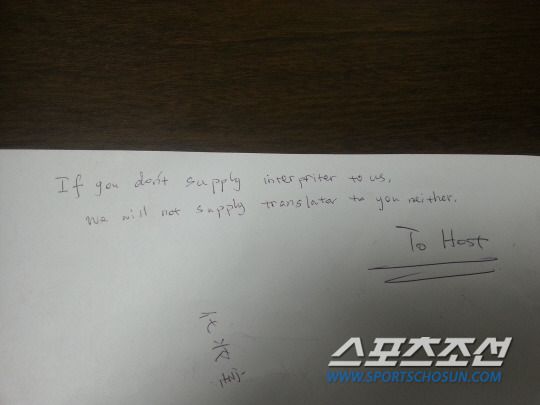 If you don't supply interpriter to us,
we will not supply translator to you neither.
To Host
스포츠조선
WWW.SPORTSCHOSUN.COM